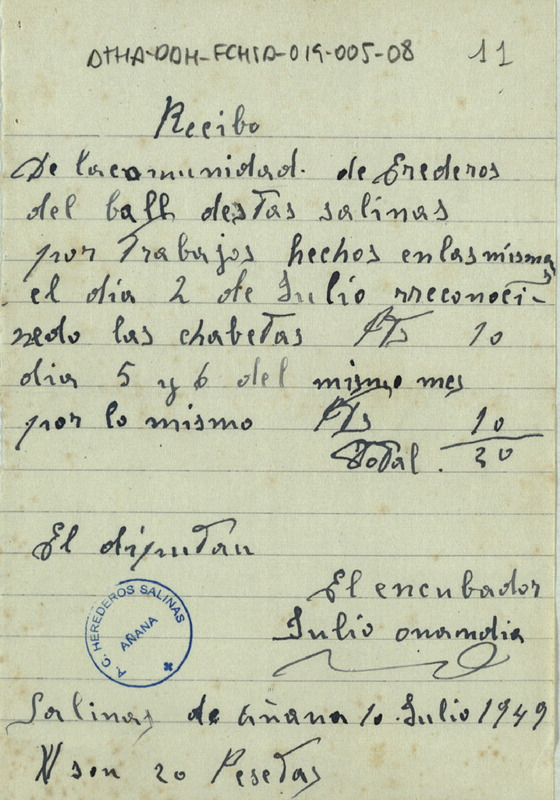 DTHA-DDH-FCHTD-019-005-08 11
Recibo
De lacomunidad. de Erederos
del ball destas salinas
por Trabajos hechos enlasmismas
el dia 2 de Iulio rreconoci-
nedo las chabetas PTs 10
dia 5 y 6 del mismo mes
por lo mismo PTs 10
Total. 20
El diputau
El encubador
Iulio onamdia
P. C. HEREDEROS SALINAS
AÑANA
Salinas de añana 10. Iulio 1949
son 20 Pesetas